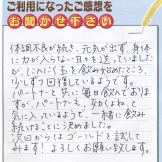 ご利用になったご感想を
お聞かせ下さい
体調不良が続き、元気が出ず、身体
に力が入らない日々を送っていました
が、にんにく玉を飲み始めたところ、
少しずつ回復しております。
パートナーと共に毎日飲んでおり
ますが、パートナーも、なかなかと
気に入っているようで、一緒に飲み
続けることに決めました。
次回からはゴールドを試して
みます！よろしくお願い致します。